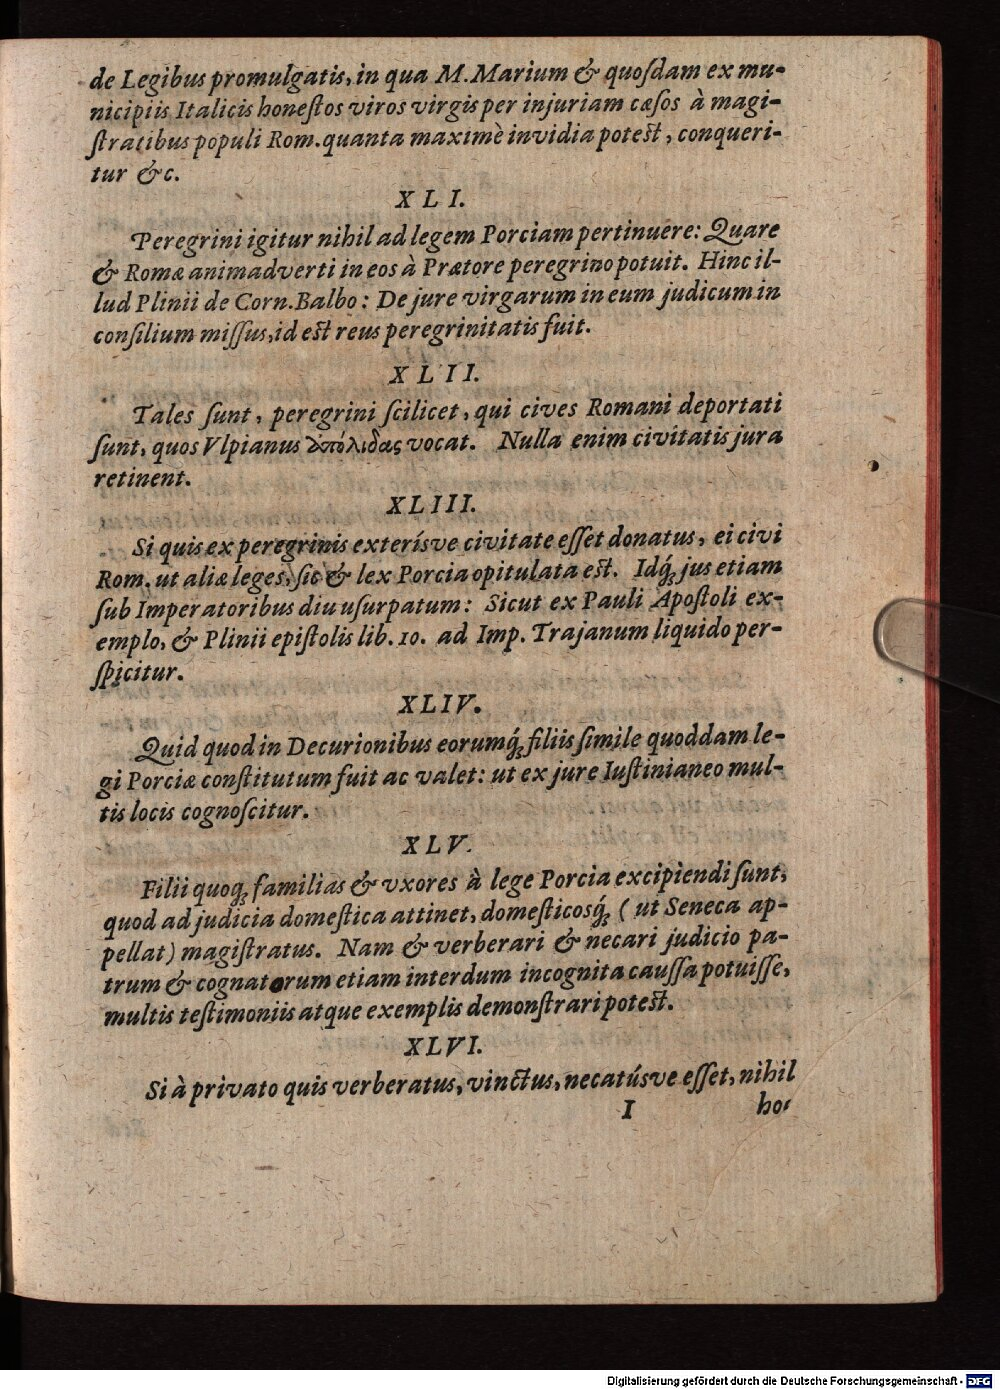 de Legibus promulgatis, in qua M. Marium & quoſdam ex mu-
nicipiis Italicis honeſtos viros virgis per injuriam cæſos à magi-
ſtratibus populi Rom. quanta maximè invidia poteſt, conqueri-
tur &c.
XLI.
Peregrini igitur nihil ad legem Porciam pertinuere: Quare
& Romæ animadverti in eos à Prætore peregrino potuit. Hinc il-
lud Plinii de Corn. Balbo: De jure virgarum in eum judicum in
conſilium miſſus, id eſt reus peregrinitatis fuit.
XLII.
Tales ſunt, peregrini ſcilicet, qui cives Romani deportati
ſunt, quos Vlpianus ἀπόλιδας vocat. Nulla enim civitatis jura
retinent.
XLIII.
Si quis ex peregrinis exterísve civitate eſſet donatus, ei civi
Rom. ut aliæ leges, ſic & lex Porcia opitulata eſt. Idq́; jus etiam
ſub Imperatoribus diu uſurpatum: Sicut ex Pauli Apoſtoli ex-
emplo, & Plinii epiſtolis lib. 10. ad Imp. Trajanum liquido per-
ſpicitur.
XLIV.
Quid quod in Decurionibus eorumq́; filiis ſimile quoddam le-
gi Porciæ conſtitutum fuit ac valet: ut ex jure Iuſtinianeo mul-
tis locis cognoſcitur.
XLV.
Filii quoq; familias & uxores à lege Porcia excipiendi ſunt,
quod ad judicia domeſtica attinet, domeſticosq́; (ut Seneca ap-
pellat) magiſtratus. Nam & verberari & necari judicio pa-
trum & cognatorum etiam interdum incognita cauſſa potuiſſe,
multis teſtimoniis atque exemplis demonſtrari poteſt.
XLVI.
Si à privato quis verberatus, vinctus, necatúsve eſſet, nihil
I hoc
Digitalisierung gefördert durch die Deutsche Forschungsgemeinschaft - DFG